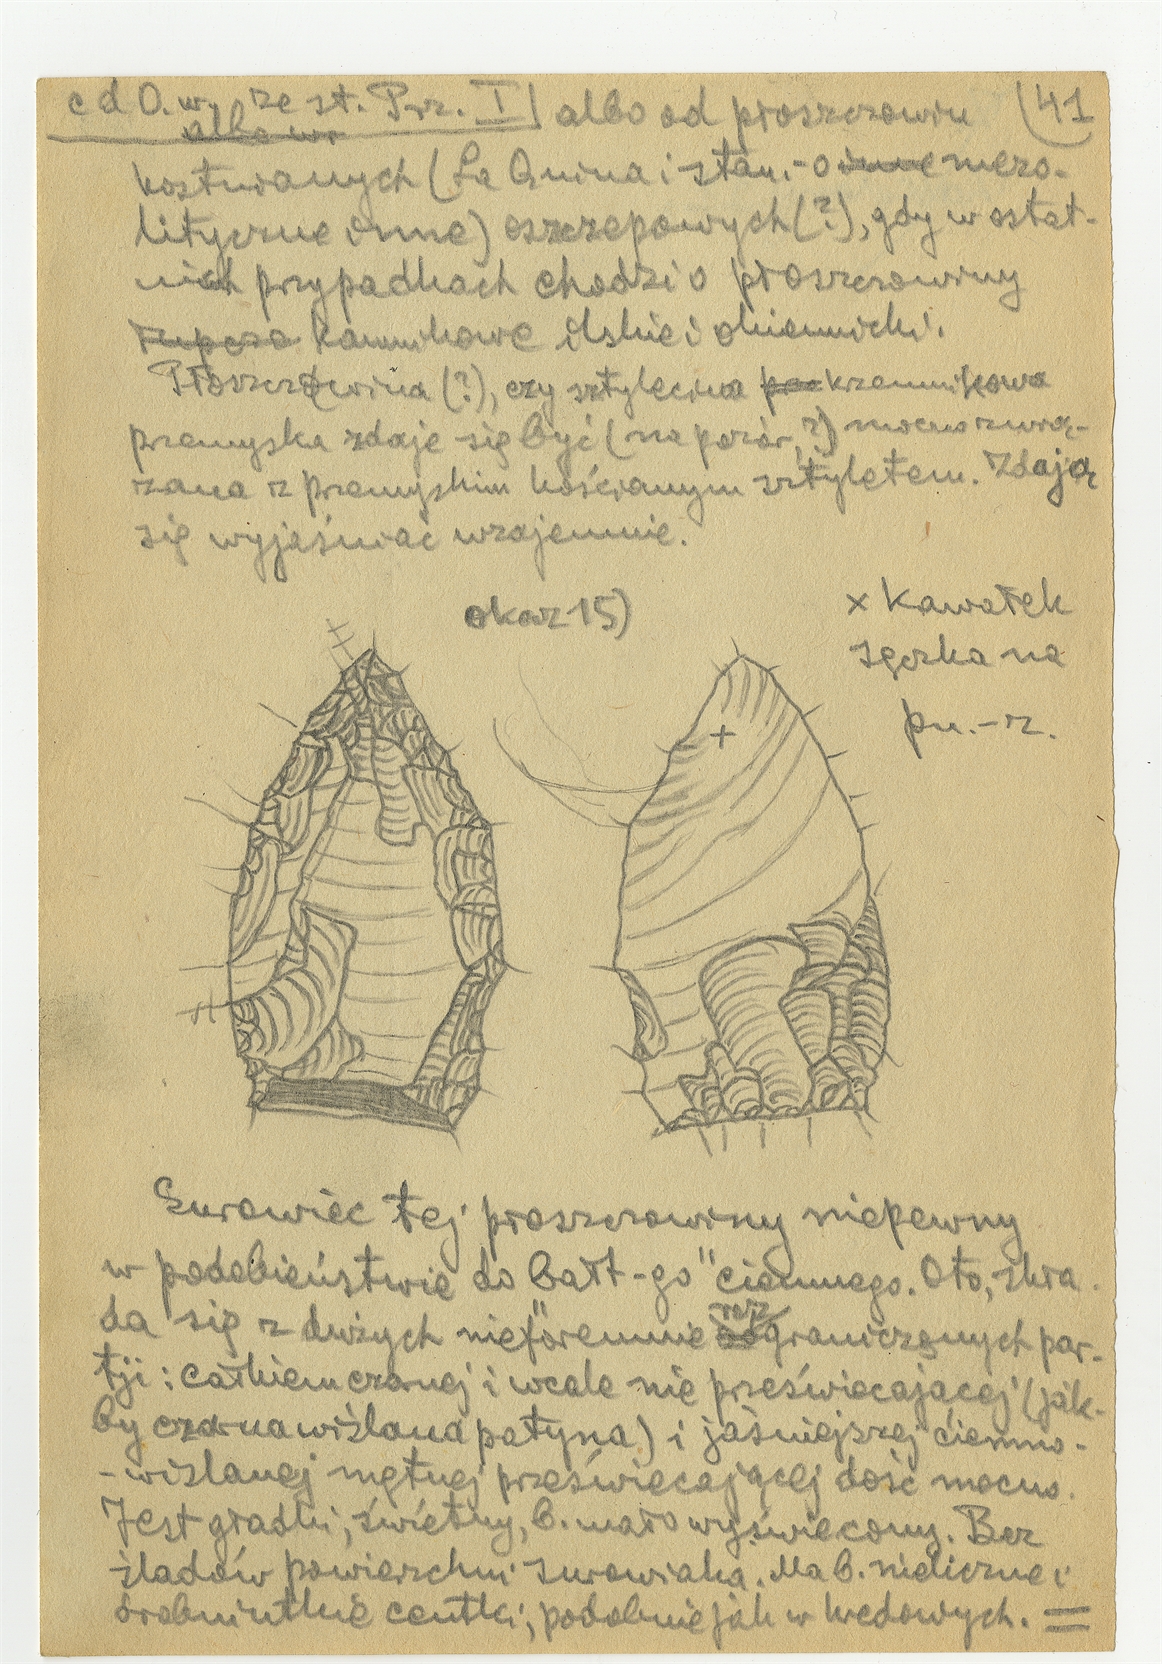 c d O. wyże st. Prz. I) albo od płoszczowin (41
albo wr
kostnianych (La Quina i stan.-o inne mezo-
lityczne inne) oszczepowych (?), gdy w ostat-
nich przypadkach chodzi o płoszczowiny
kamnikowe ilskie i okiennicki.
Płoszczowina (?), czy sztylecina krzemnikowa
przemyska zdaje się być (na pozór, ?) mocno zwią-
zana z przemyskim kościanym sztyletem. Zdają
się wyjaśniać wzajemnie.
okaz 15)
x kawałek
sęczka na
pu.-z.
Surowiec tej płoszczowiny niepewny
w podobieństwie do bałt-go "ciemnego. Oto, skła-
da się z dużych nieforemnie rozgraniczonych par-
tji: całkiem czarnej i wcale nie przeświecającej (jak-
by czarna wiślana patyna) i jaśniejszej ciemno-
-wiślanej mętnej przeświecającej dość mocno.
Jest gładki, świetny, b. mało wyświecony. Bez
śladów powierzchni surowiaka. Ma b. nieliczne i
drobniutkie centki, podobnie jak w kredowych. =